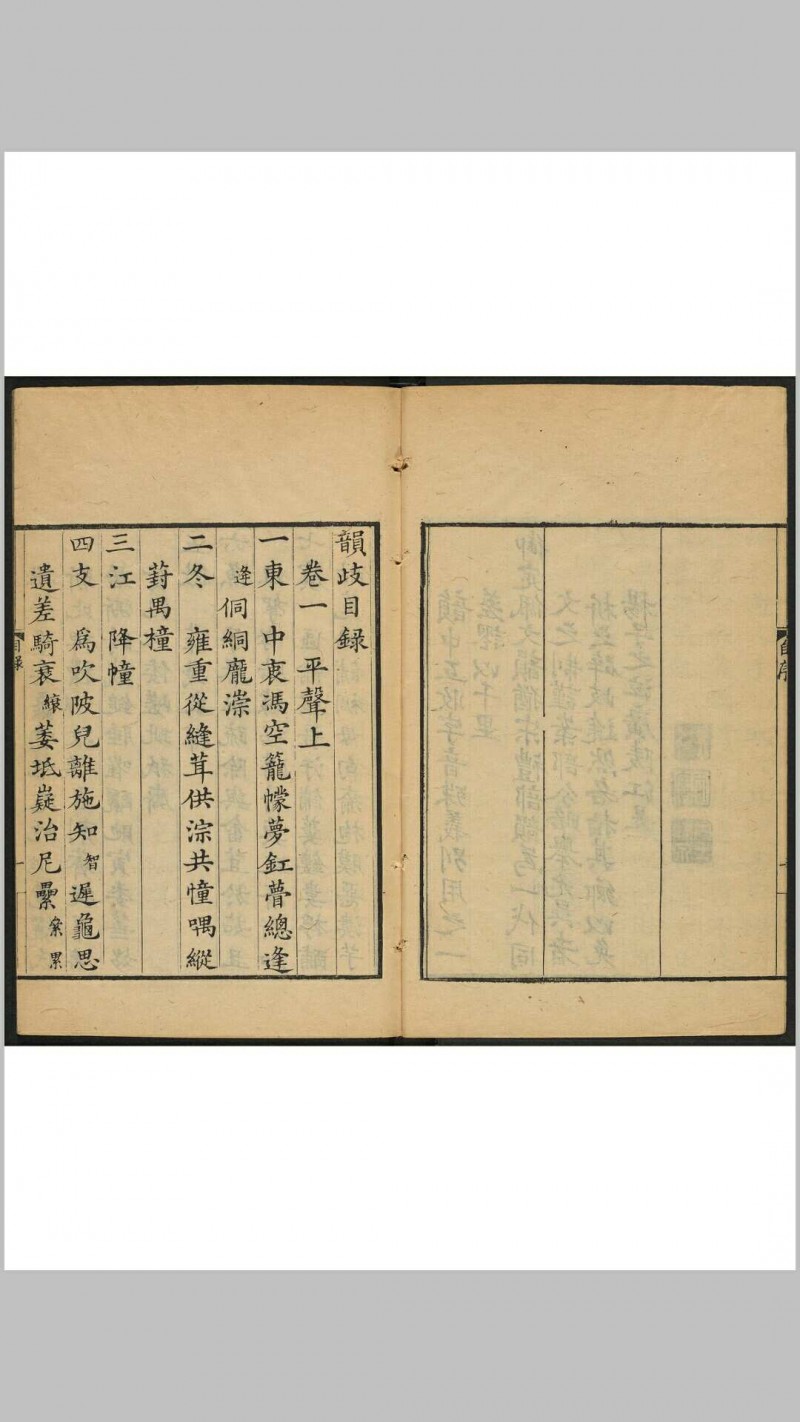 自序
韻歧目録
卷一 平聲上
一東 中衷馮空籠幪夢釭瞢總逢
逄侗絅龐漴
二冬 雍重從縫茸供淙共憧喁縱
葑禺橦
三江 降幢
四支 為吹陂兒離施知智遲龜思
遺差騎衰縗萎坻嶷治尼纍絫累
目録